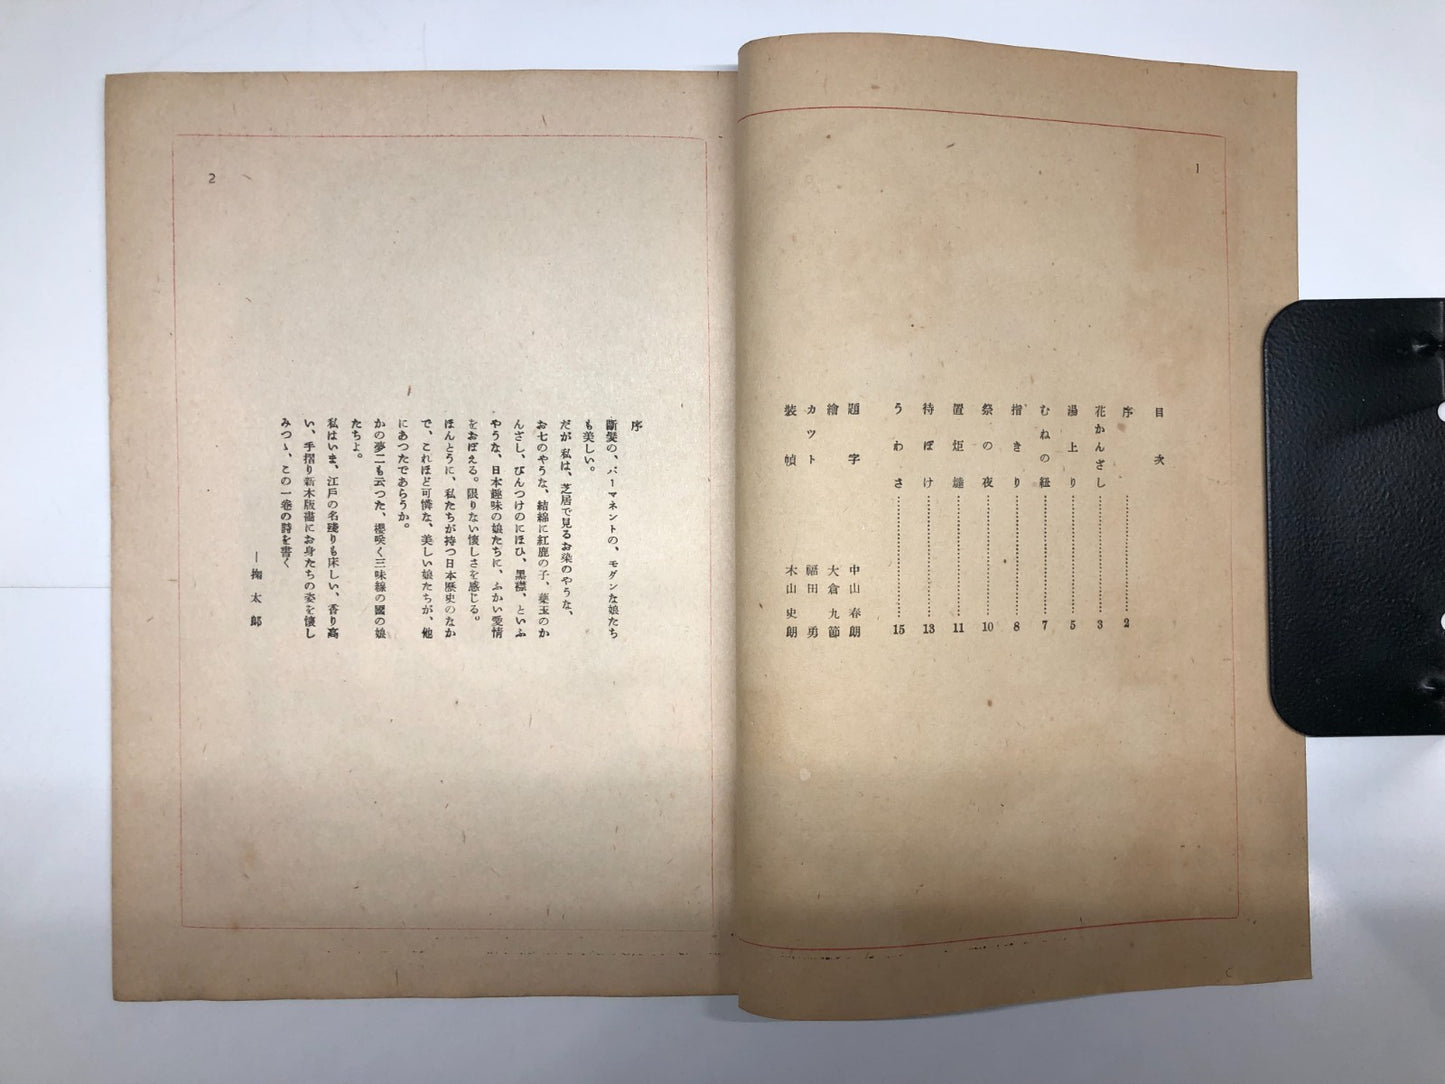 1
目次
序 2
花かんざし 3
湯上り 5
むねの紐 7
指きり 8
祭の夜 10
置炬燵 11
待ぼけ 13
うわさ 15
題字 中山春朗
繪 大倉九節
カツト 福田勇
装幀 木山史朗
2
序
斷髮の、パーマネントの、モダンな娘たち
も美しい。
だが私は、芝居で見るお染のやうな、
お七のやうな、結綿に紅鹿の子、藥玉のか
んざし、びんつけのにほひ、黑襟、といふ
やうな、日本趣味の娘たちに、ふかい愛情
をおぼえる。限りない懷しさを感じる。
ほんとうに、私たちが持つ日本歷史のなか
で、これほど可憐な、美しい娘たちが、他
にあつたであらうか。
かの夢二も云つた、櫻咲く三味線の國の娘
たちよ。
私はいま、江戶の名殘りも床しい、香り高
い、手摺り新木版畫にお身たちの姿を懷し
みつゝ、この一卷の詩を書く
―掬太郎